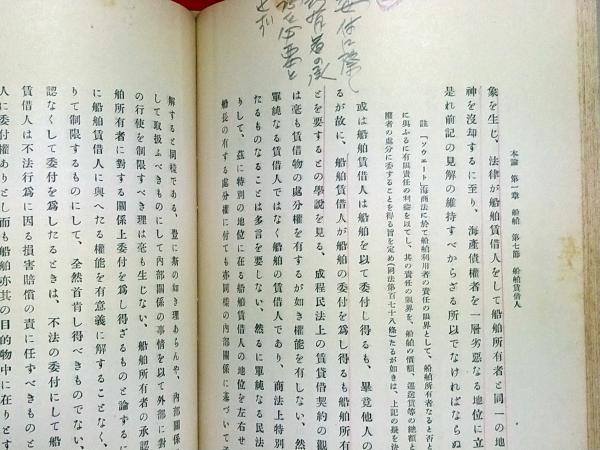 委付に際し
所有者の承
諾を必要と
せず
本論　第一章　船舶　第七節　船舶賃借人
象を生じ、法律が船舶賃借人をして船舶所有者と同一の地
神を沒却するに至り、海產債權者を一層劣惡なる地位に立
是れ前記の見解の維持すべからざる所以でなければならぬ
註「ソヴェート」海商法に於て船舶利用者の責任の限界として、船舶所有者なると否と
に與ふるに有限責任の利益を以てし、其の責任の限界を、船舶の價額、運送賃等の總額と
權者の處分に委することを得る旨を定め（同法第百七十八條）たるが如きは、上記の缺を法
或は船舶賃借人は船舶を以て委付し得るも、畢竟他人の
るが故に、船舶賃借人が船舶の委付を爲し得るも船舶所有
とを要するとの學說を見る、成程民法上の賃貸借契約の觀
は毫も賃借物の處分權を有するが如き權能を有しない、然
單純なる賃借人ではなく船舶の賃借人であり、商法上特別
たるものなることは多言を要しない、然るに單純なる民法
りして、茲に特別の地位に在る船舶賃借人の地位を左右せ
船長の有する處分權に付ても亦同樣の內部關係に基づいてそ
解すると同樣である、豈に斯の如き理あらんや、內部關係
して取扱ふべきものにして內部關係の事情を以て外部に對
の行使を制限すべき理は毫も生じない、船舶所有者の承認
舶所有者に對する關係上委付を爲し得ざるものと論ずるに
に船舶賃借人に與へたる權能を有意義に解することなく、
りて制限するものにして、全然首肯し得べきものでない、
認なくして委付を爲したるときは、不法の委付にして船
賃借人は不法行爲に因る損害賠償の責に任すべきもの
人に委付權ありとし而も船舶亦其の目的物中に在りとす